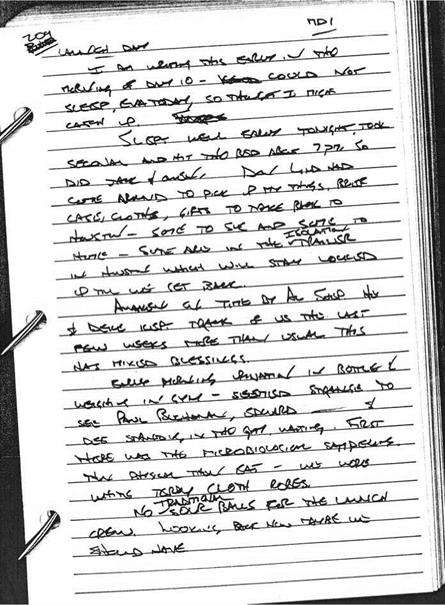 209
MD1
LAUNCH DAY
I AM WRITING THIS EARLY IN THE
MORNING OF DAY 10 - COULD NOT
SLEEP, EVA TODAY, SO THOUGHT I MIGHT
CATCH UP
SLEPT WELL EARLY TONIGHT, TOOK
SECONAL AND HIT THE BED ABOUT 7 PM. SO
DID JACK & OWEN. DON LIND HAD
COME AROUND TO PICK UP MY THINGS, BRIEF
CASE, CLOTHES, GIFTS TO TAKE BACK TO
HOUSTON - SOME TO SUE AND SOME TO
HOME - SOME ARE IN THE ISOLATION TRAILER
IN HOUSTON WHICH WILL STAY LOCKED
UP TILL WE GET BACK.
AWAKEN ON TIME BY AL SHEP HE
& DEKE KEPT TRACK OF US THE LAST
FEW WEEKS MORE THAN USUAL THIS
HAS MIXED BLESSINGS.
EARLY MORNING URINATION IN BOTTLE &
WEIGHING IN GYM - SEEMED STRANGE TO
SEE PAUL BUCHANAN, EDWARD &
DEE STANDING IN THE GYM WAITING. FIRST
THERE WAS THE MICROBIOLOGICAL SAMPLING
THE PHYSICAL THEN EAT - WE WORE
WHITE TERRY CLOTH ROBES.
NO TRADITIONAL SOUR BALLS FOR THE LAUNCH
CREW. LOOKING BACK NOW MAYBE WE
SHOULD HAVE